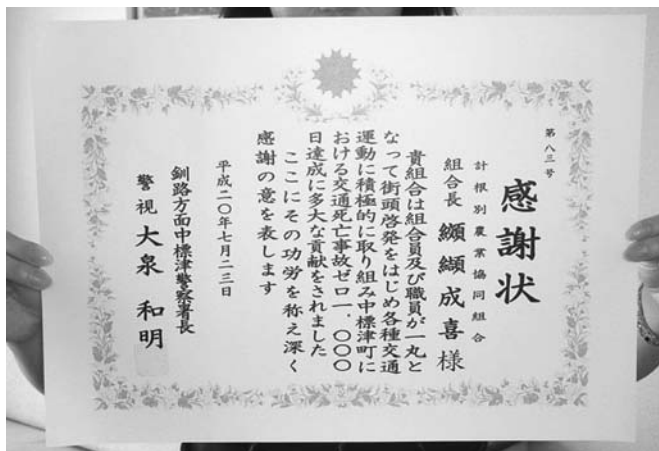 第八三号
感謝状
計根別農業協同組合
組合長 纐纈成喜様
貴組合は組合員及び職員が一丸と
なって街頭啓発をはじめ各種交通
運動に積極的に取り組み中標津町に
おける交通死亡事故ゼロ一、〇〇〇
日達成に多大な貢献をされました
ここにその功労を称え深く
感謝の意を表します
平成二〇年七月二三日
釧路方面中標津警察署長
警視 大泉和明